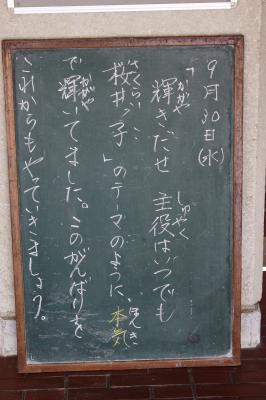 9月30日(水)
「輝きだせ 主役はいつでも
桜井っ子」のテーマのように、本気
で輝いてました。このがんばりを
これからもやっていきましょう。